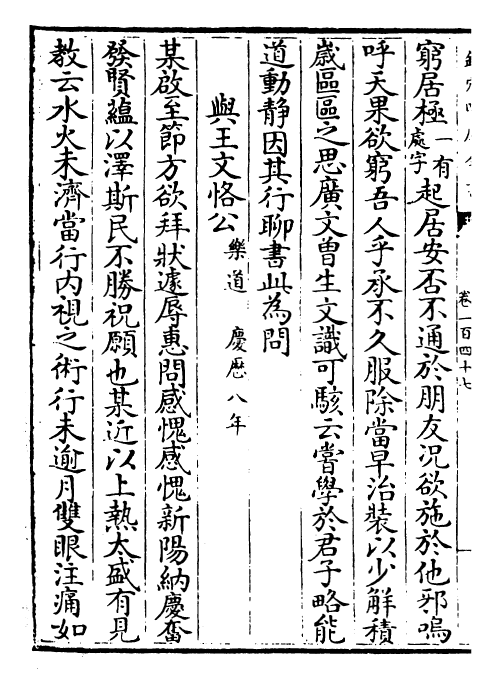 窮居極一有處字起居安否不通於朋友况欲施於他邪嗚
呼天果欲窮吾人乎承不久服除當早治裝以少解積
嵗區區之思廣文曾生文識可駭云嘗學於君子略能
道動静因其行聊書此為問
與王文恪公樂道 慶厯八年
某啟至節方欲拜狀遽辱惠問感愧感愧新陽納慶奮
發賢藴以澤斯民不勝祝願也某近以上熱太盛有見
教云水火未濟當行内視之術行未逾月雙眼注痛如
卷一百四十七